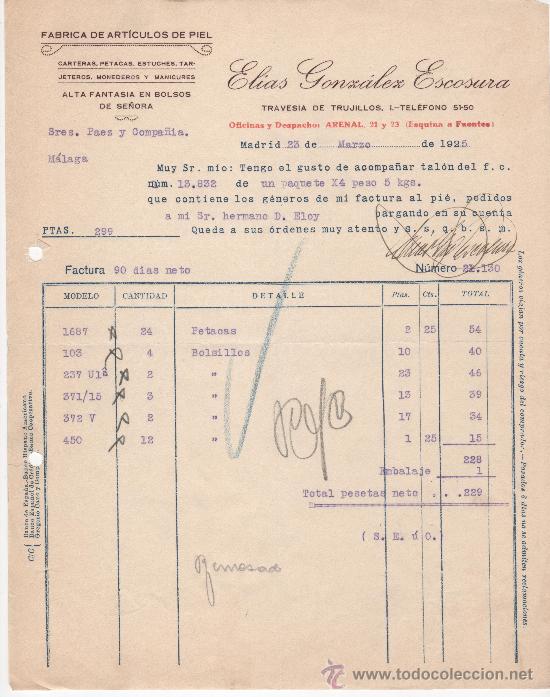 FABRICA DE ARTÍCULOS DE PIEL
CARTERAS, PETACAS, ESTUCHES, TAR-
JETEROS, MONEDEROS Y MANICURES
ALTA FANTASIA EN BOLSOS
DE SEÑORA
Elías González Escosura
TRAVESIA DE TRUJILLOS, 1.-TELÉFONO 51-50
Oficinas y Despacho: ARENAL, 21 y 23 (Esquina a Fuentes)
Sres. Paez y Compañia.
Madrid 23 de Marzo de 1925
Málaga
Muy Sr. mio: Tengo el gusto de acompañar talón del f. c.
núm. 13.832 de un paquete X4 peso 5 kgs.
que contiene los géneros de mi factura al pié, pedidos
a mi Sr. hermano D. Eloy cargando en su cuenta
PTAS. 299 Queda a sus órdenes muy atento y s. s. q. b. s. m.
Factura 90 dias neto Número 21.130
MODELO CANTIDAD DETALLE Ptas. Cts. TOTAL
1687 24 Petacas 2 25 54
103 4 Bolsillos 10 40
237 U1ª 2 " 23 46
371/15 3 " 13 39
372 V 2 " 17 34
450 12 " 1 25 15
228
Embalaje 1
Total pesetas neto . . . 229
( S. E. ú O. )
Los géneros viajan por cuenta y riesgo del comprador.—Pasados 8 dias no se admiten reclamaciones.
C/C
Banco de España.-Banco Hispano Americano